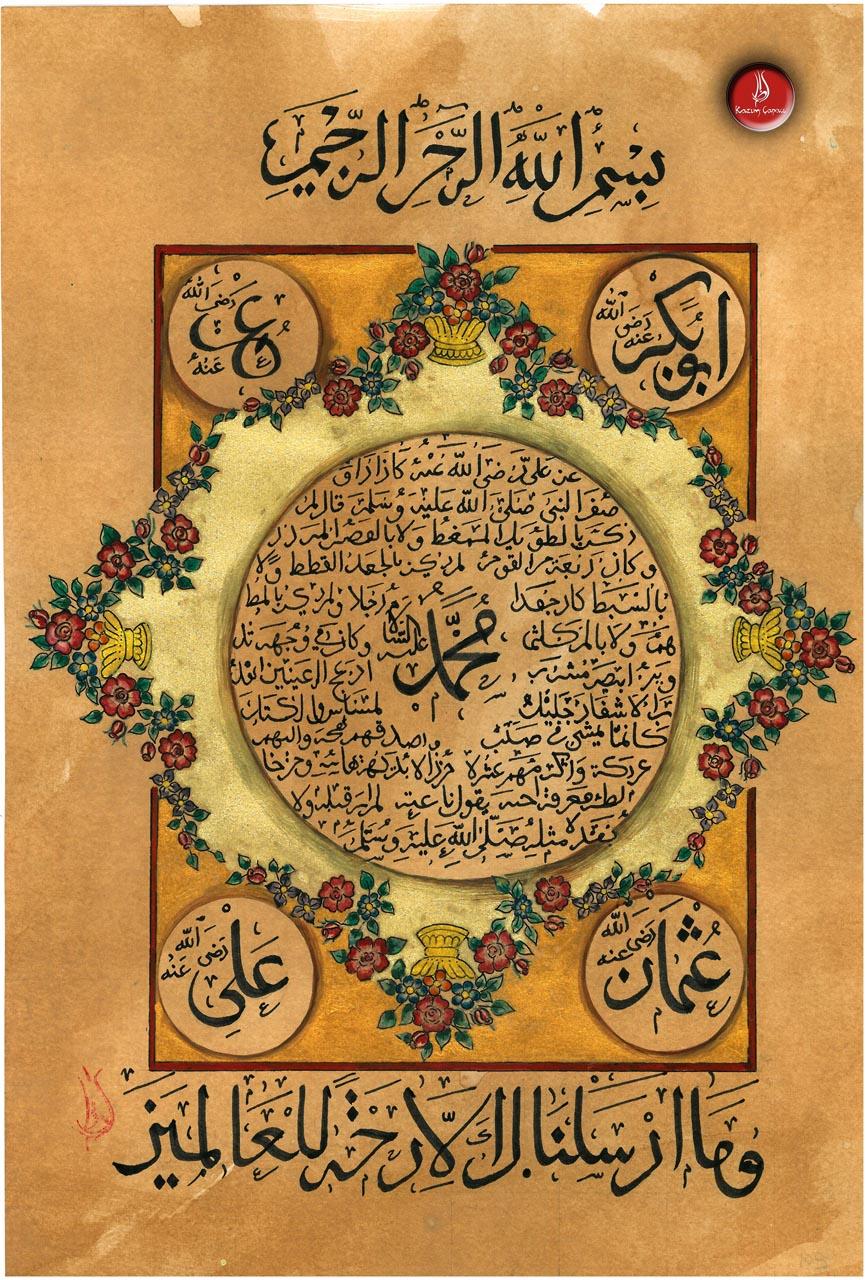 Kazım Çapacı
بِسْمِ اللّٰهِ الرَّحْمٰنِ الرَّحِيمِ
ابوبكر رضى الله عنه
عمر رَضِىَ اللّٰهُ عَنْهُ
عن على رضى الله عنه كان اذا
وصف النبى صلى الله عليه وسلم قال لم
يكن بالطويل الممغط ولا بالقصير المتردد
وكان ربعة من القوم لم يكن بالجعد القطط ولا
بالسبط كان جعدا رجلا ولم يكن بالمط
محمد عليه السلام
هم ولا بالمكلثم وكان فى وجهه تد
وير ابيض مشرب ادعج العينين اهد
ب الاشفار جليل المشاش والكتد
كانما يمشى فى صبب واصدقهم لهجة والينهم
عريكة واكرمهم عشرة من رآه بديهة هابه ومن خا
لطه معرفة احبه يقول ناعته لم ار قبله ولا
بعده مثله صلى الله عليه وسلم
عُثْمَان رضى الله عنه
عَلِى رضى الله عنه
وَمَا اَرْسَلْنَاكَ اِلَّا رَحْمَةً لِلْعَالَمِينَ